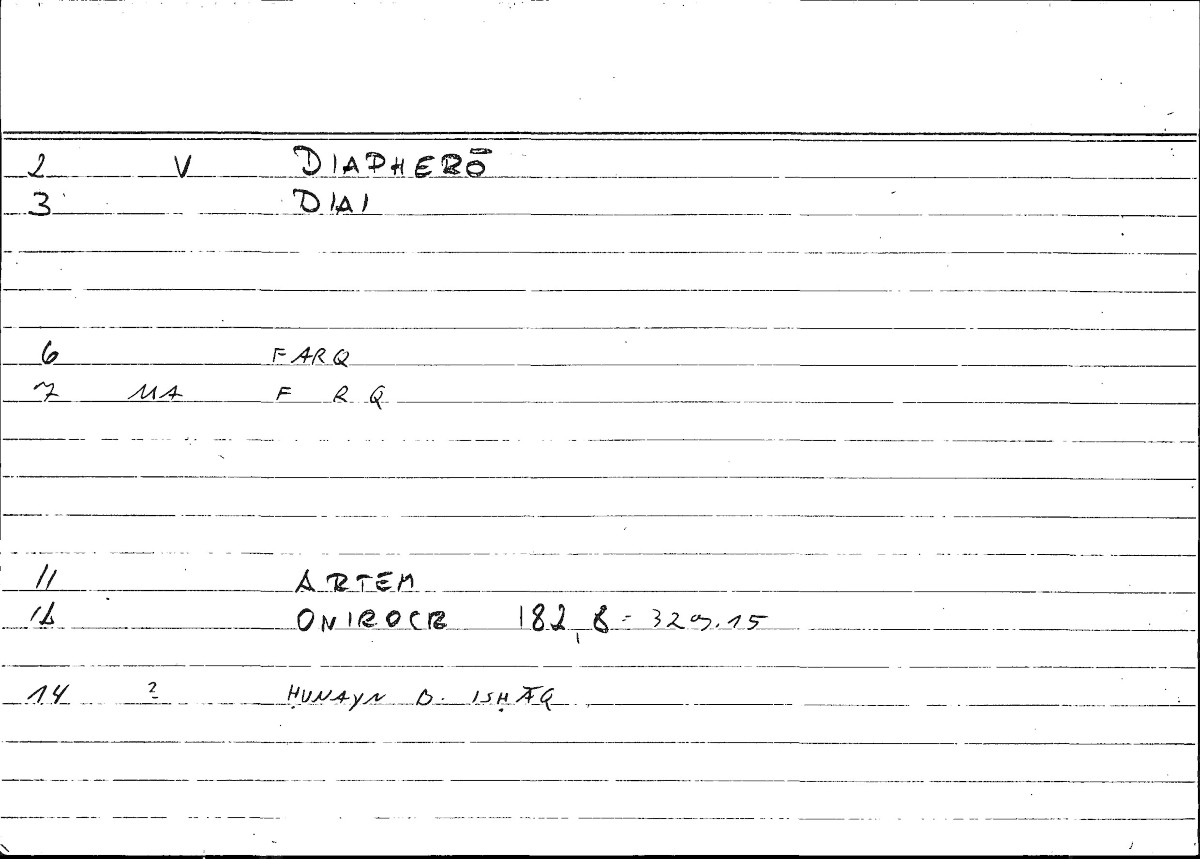 2 V DIAPHERŌ
3 DIAI
6 FARQ
7 MA F R Q
11 ARTEM
12 ONIROCR 182,8 = 329.15
14 ? ḤUNAYN B. ISḤĀQ